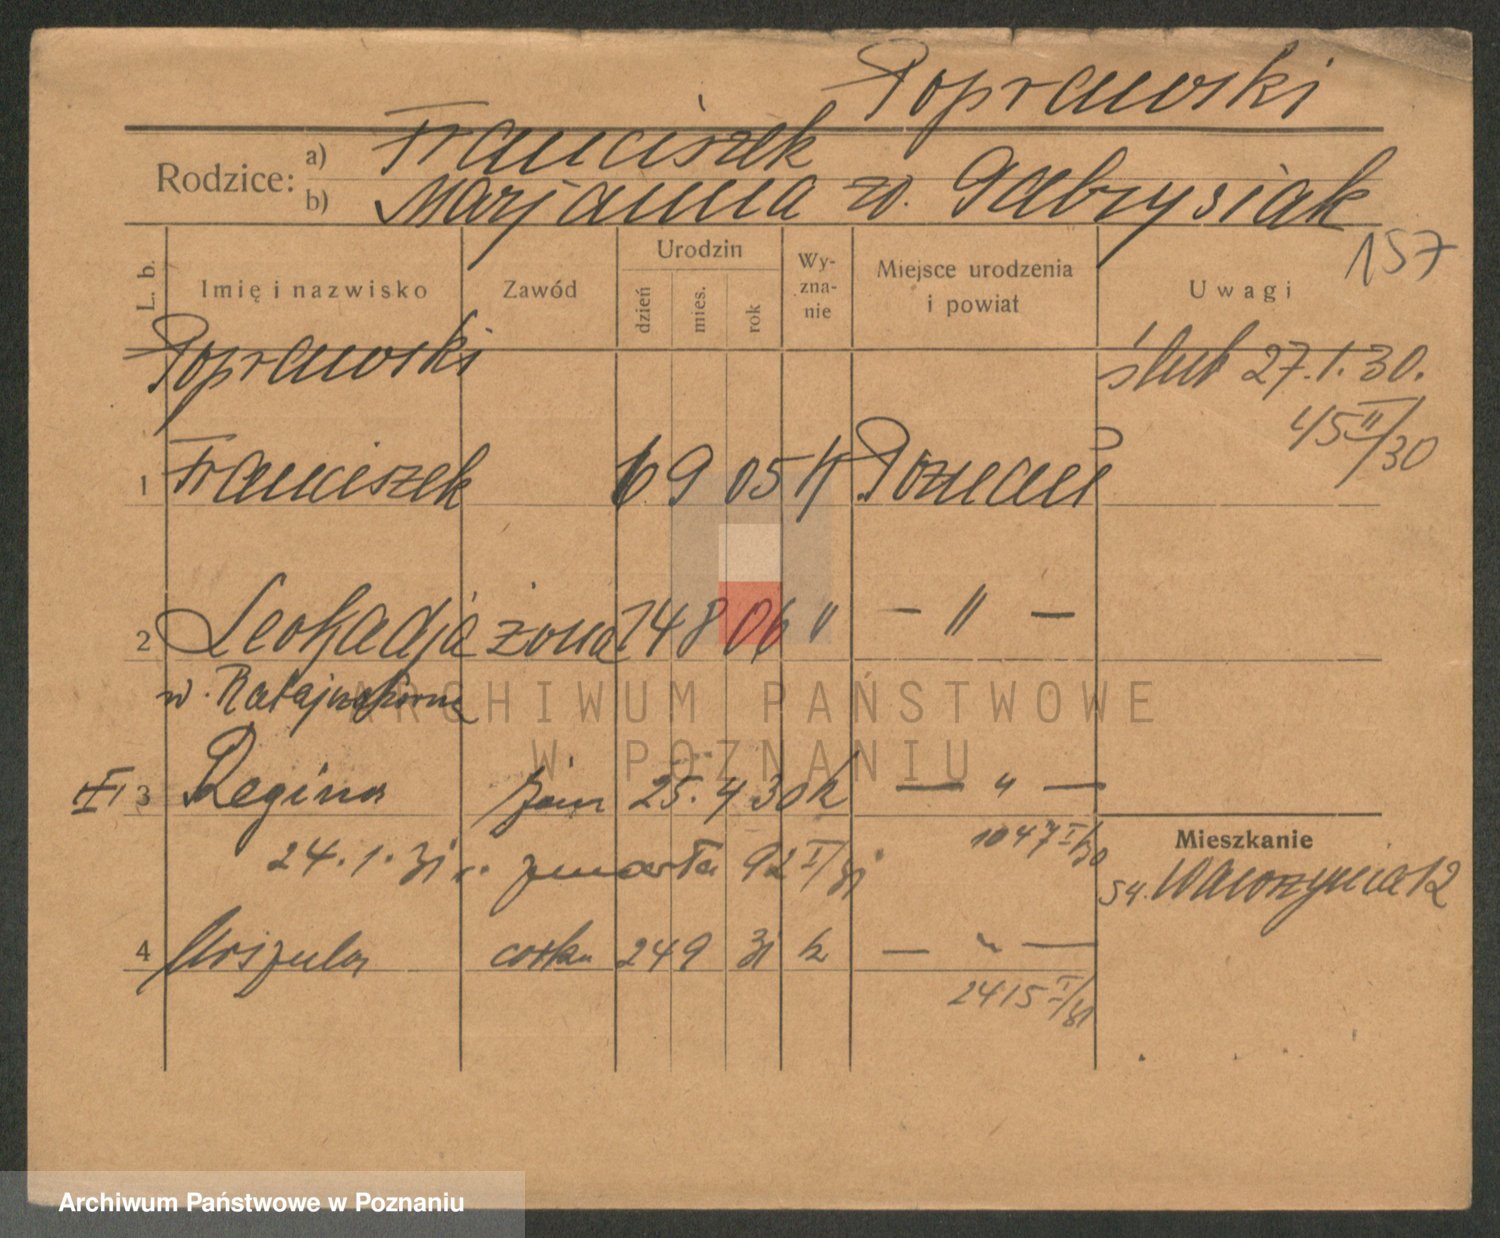 Poprawski
Rodzice: a) Franciszek
b) Marjanna z. Gabrysiak
157
L. b. Imię i nazwisko Zawód Urodzin dzień mies. rok Wyznanie Miejsce urodzenia i powiat Uwagi
Poprawski ślub 27.1.30.
45 II/30
1 Franciszek 6 9 05 K Poznań
2 Leokadja żona 14 8 06 " — " —
3 Regina 25. 4 30 k — " —
1047 I/30
Mieszkanie
24.1.31 zmarła 92 I/31
św. Wawrzyńca 12
4 Urszula córka 24 9 31 k — " —
2415 I/31
ARCHIWUM PAŃSTWOWE
W POZNANIU
Archiwum Państwowe w Poznaniu